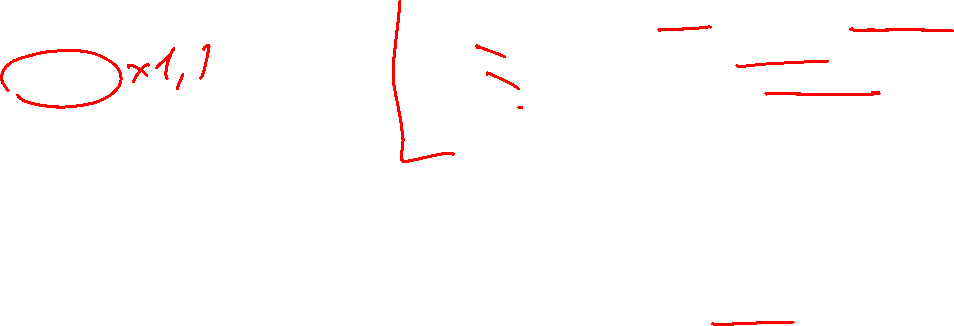 ×1,1